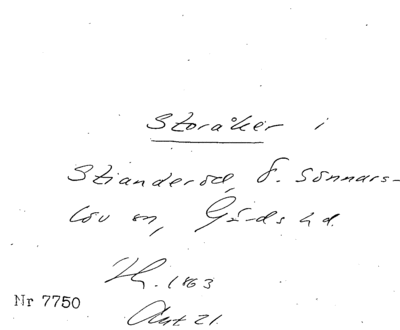 Storåker i
Stianderöd, Ö. Sönnars-
löv sn, Gärds hd.
1863
Nr 7750
Akt 21.